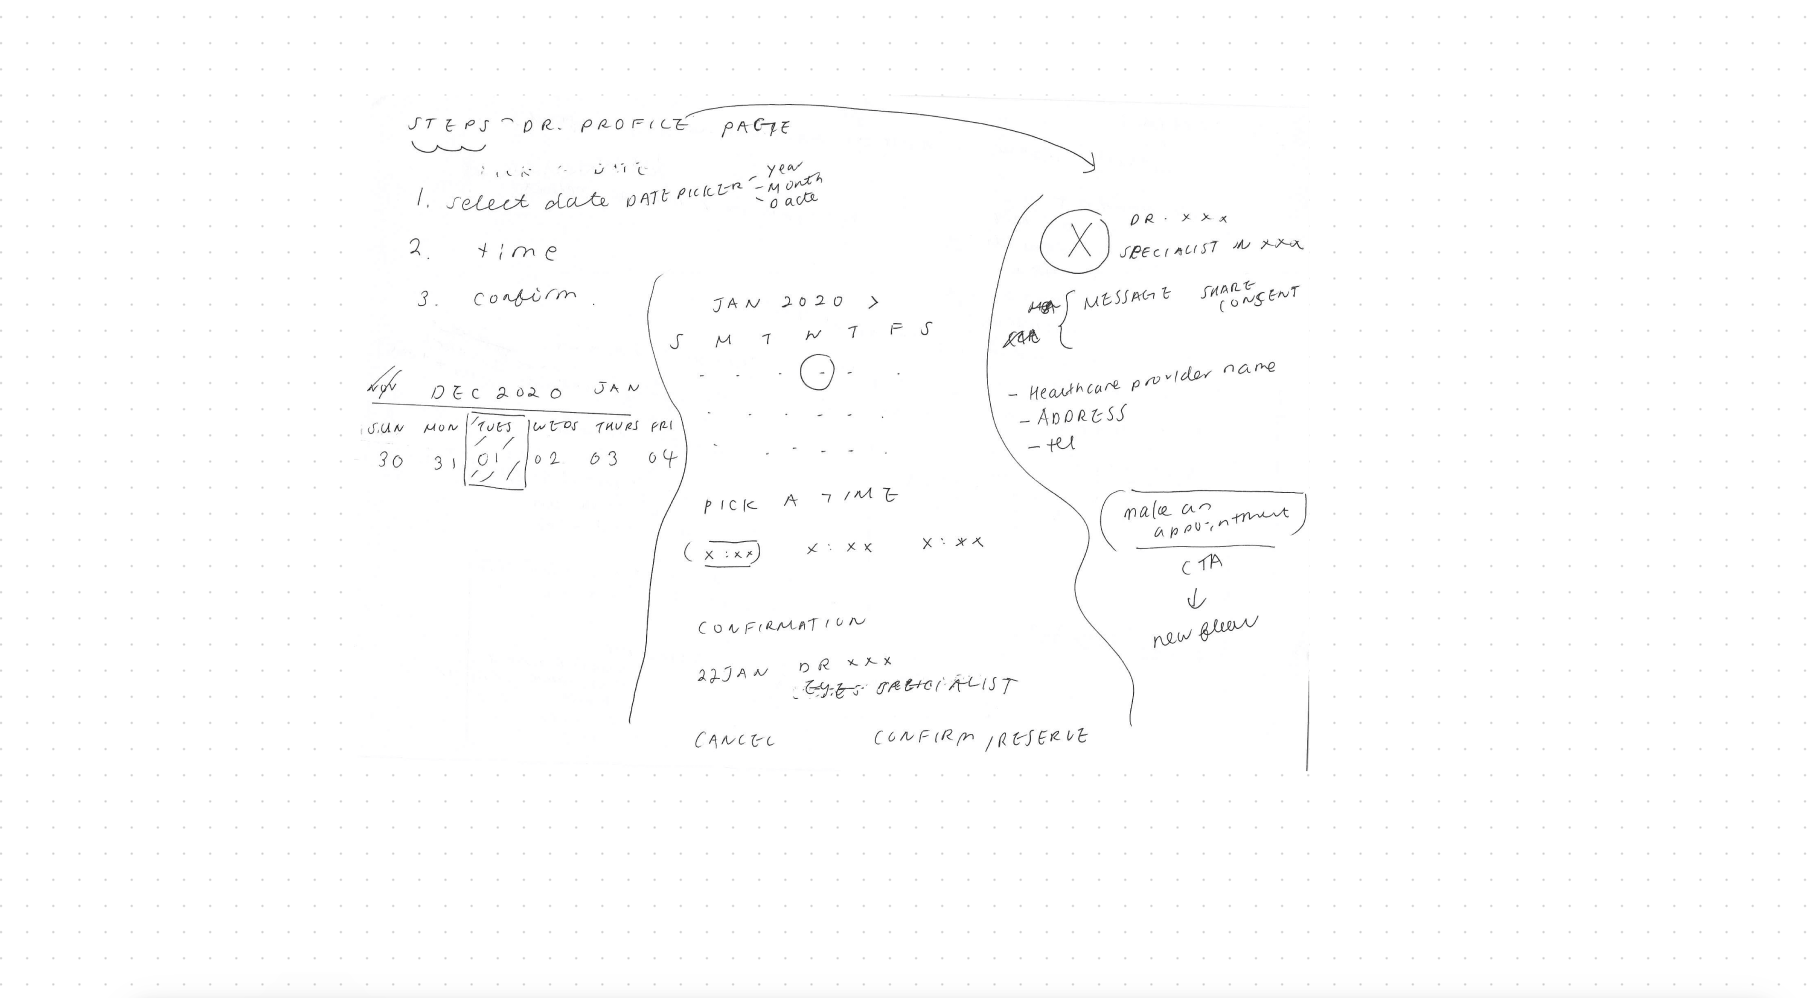 STEPS - DR. PROFILE PAGE
1. select date DATEPICKER - year
- Month
- Date
2. time
3. confirm.
NOV DEC 2020 JAN
SUN MON TUES WEDS THURS FRI
30 31 01 02 03 04
JAN 2020 >
S M T W T F S
PICK A TIME
(x:xx) x:xx x:xx
CONFIRMATION
22JAN DR xxx
EYES SPECIALIST
CANCEL CONFIRM/RESERVE
X
DR. xxx
SPECIALIST IN xxx
MESSAGE SHARE
CONSENT
- Healthcare provider name
- ADDRESS
- tel
make an
appointment
CTA
↓
new